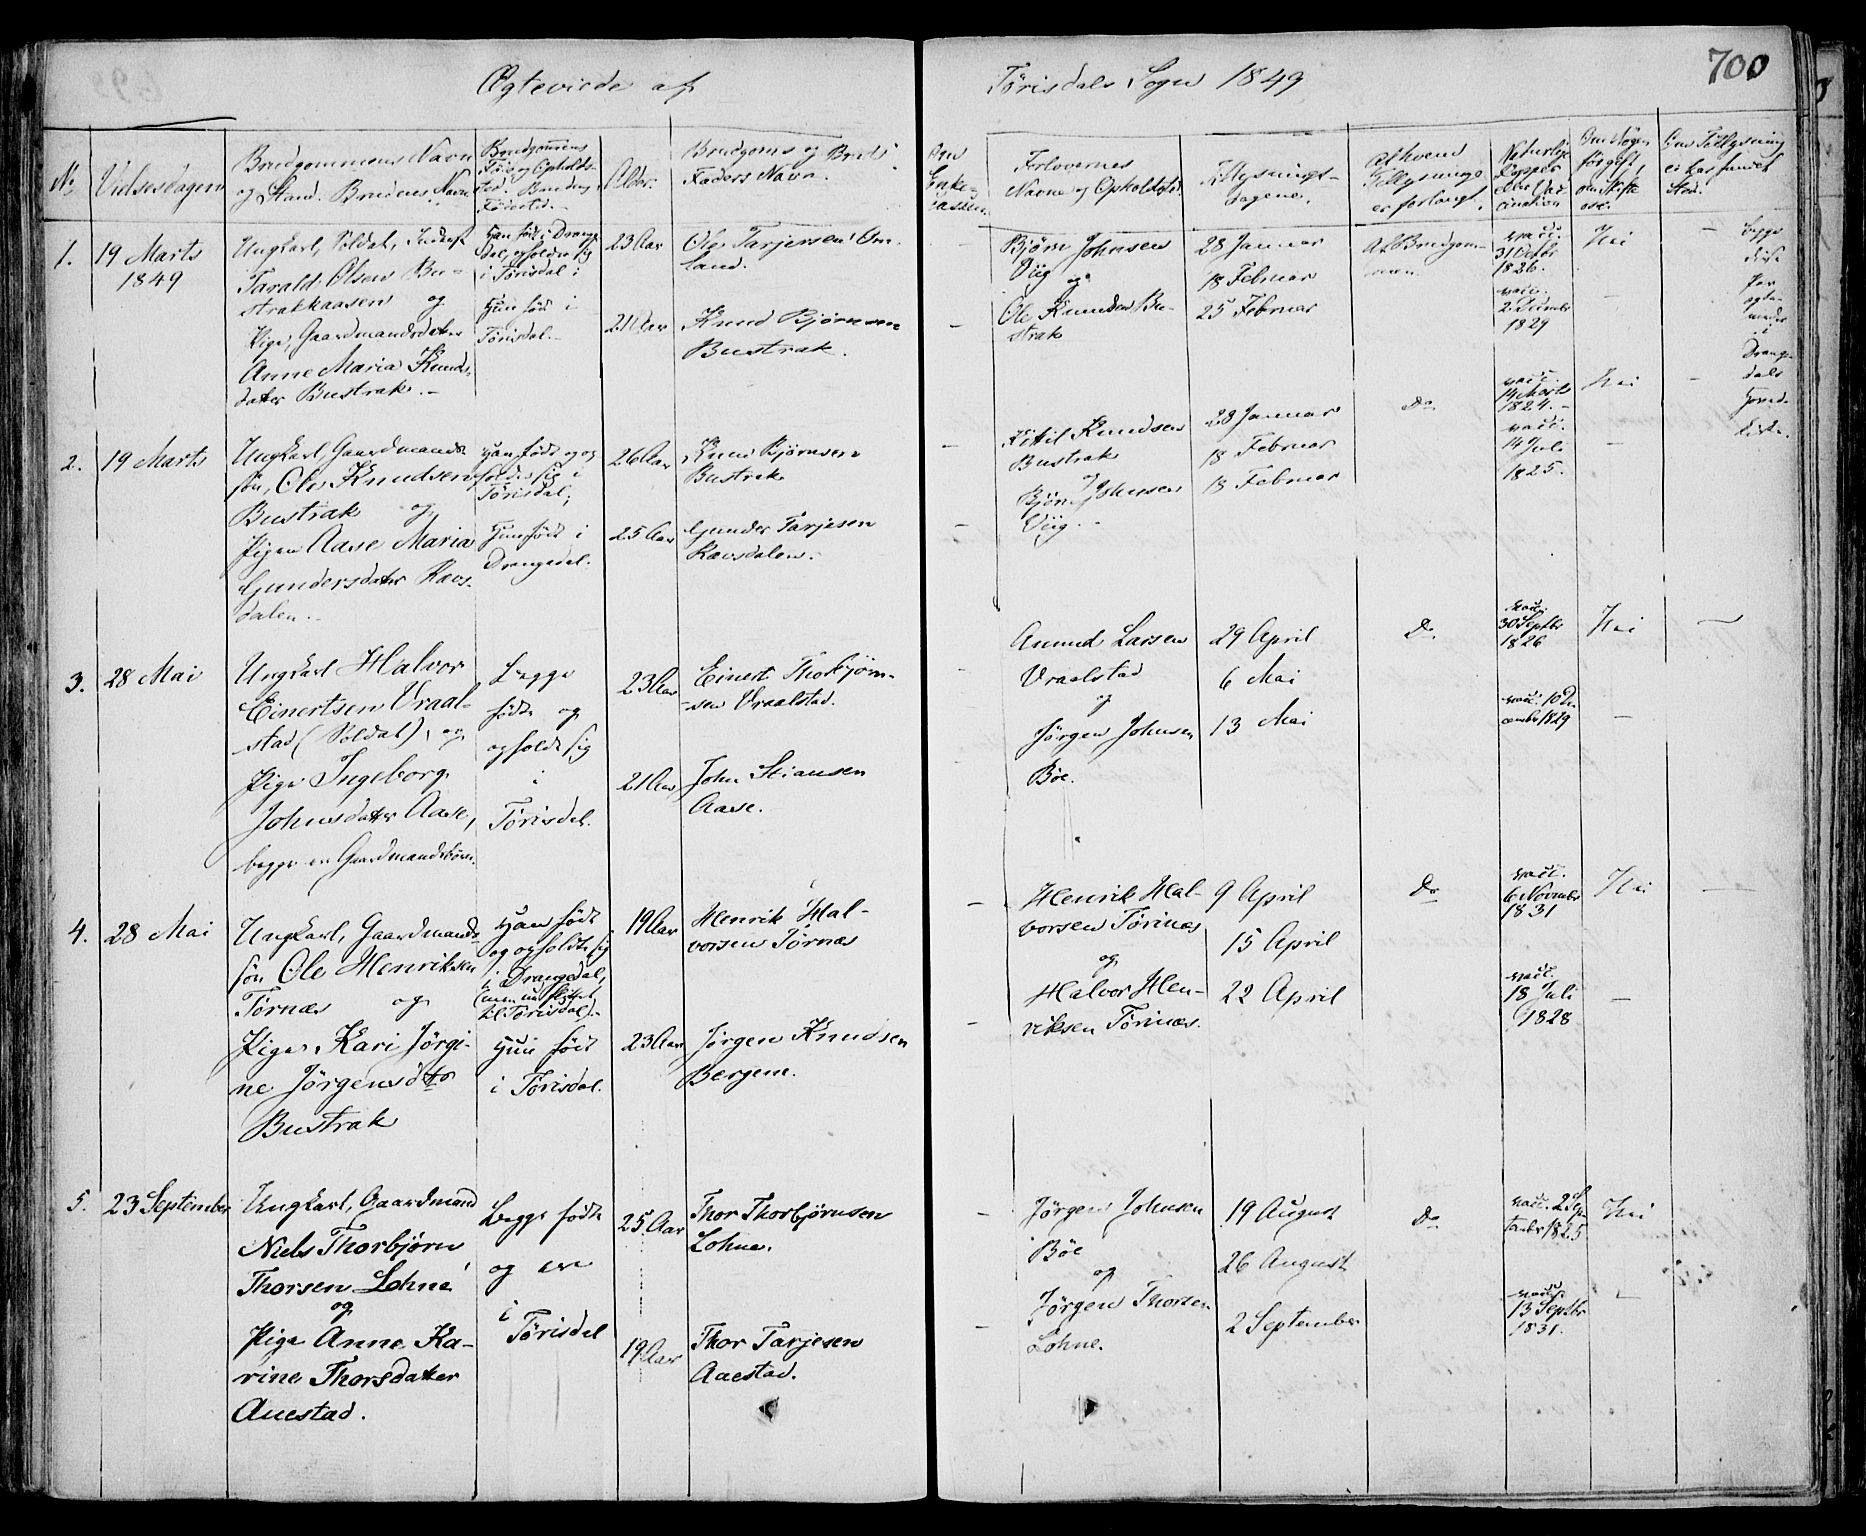 Ægteviede af Tørisdals Sogn 1849
700
No
Vielsesdagen
Brudgommens Navn
og Stand. Brudens Navn
Brudgommens
Føde og Opholds-
sted. Brudens
Fødested.
Alder.
Brudgoms og Bruds
Faders Navn.
Om
Enke-
Forlovernes
Navne og Opholdssted
Tillysnings-
dagene.
Af hvem
Tillysningen
er forlangt.
Naturlige
Kopper
eller Vac-
cination
Om Tillysning
ei har fundet
Sted.
1.
19 Marts
1849
Ungkarl, Soldat, Inderst
Tarald Olsen Bu-
strakkaasen og
Pige, Gaardmandsdatter
Anne Maria Knuds-
datter Bustrak. -
Han født i Drange-
dal, opholder sig
i Tørisdal;
Hun født i
Tørisdal. -
23 Aar
21 Aar
Ole Tarjersen Om-
land.
Knud Bjørnsen
Bustrak.
Bjørn Johnsen
Viig
og
Ole Knudsen Bu-
strak
28 Januar
18 Februar
25 Februar
Af Brudgom-
men.
vacc.
31 Octbr
1826.
vacc.
2 Decembr
1829
Nei
Begge
disse
Par
i
Drange-
dals
Hoved-
kirke.
2.
19 Marts
Ungkarl, Gaardmands-
søn, Ole Knudsen
Bustrak og
Pigen Aase Maria
Gundersdatter Ravs-
dalen. -
Han født og op-
holder sig i
Tørisdal;
Hun født i
Drangedal.
26 Aar
25 Aar
Knud Bjørnsen
Bustrak
Gunder Tarjesen
Ravsdalen. -
Kittil Knudsen
Bustrak
og
Bjørn Johnsen
Viig. -
28 Januar
18 Februar
18 Februar
Do
vacc.
14 Marts
1824. -
vacc.
14 Juli
1825.
Nei
3.
28 Mai
Ungkarl Halvor
Einertsen Vraal-
stad (Soldat), og
Pige Ingeborg
Johnsdatter Aase,
begge ere Gaardmandsbørn.
Begge
fødte og
opholde sig
i
Tørisdal.
23 Aar
21 Aar
Einert Thorbjørn-
-sen Vraalstad.
John Stiansen
Aase.
Amund Larsen
Vraalstad
og
Jørgen Johnsen
Bøe.
29 April
6 Mai
13 Mai
Do
vacc.
30 Septbr
1826
vacc. 10 De-
cembr 1829
Nei
4.
28 Mai
Ungkarl, Gaardmands-
søn Ole Henriksen
Tørnæs og
Pige Kari Jørgi-
ne Jørgensdtr
Bustrak
Han født
og opholdt sig
i Drangedal,
(men nu flyttet
til Tørisdal). -
Hun født
i Tørisdal.
19 Aar
23 Aar
Henrik Hal-
vorsen Tørnæs
Jørgen Knudsen
Bergene.
Henrik Hal-
vorsen Tørinæs
og
Halvor Hen-
riksen Tørinæs.
9 April
15 April
22 April
Do
vacc.
6 Novembr
1831
vacc.
18 Juli
1828
Nei
5.
23 September
Ungkarl, Gaardmand
Niels Thorbjørn
Thorsen Lohne
og
Pige Anne Ka-
rine Thorsdatter
Auestad.
Begge fødte
og ere
i
Tørisdal
25 Aar
19 Aar
Thor Thorbjørnsen
Lohne.
Thor Tarjesen
Auestad.
Jørgen Johnsen
Bøe
og
Jørgen Thorsen
Lohne.
19 August
26 August
2 September
Do
vacc. 2 Sep-
tembr 1825
vacc.
13 Septbr
1831.
Nei